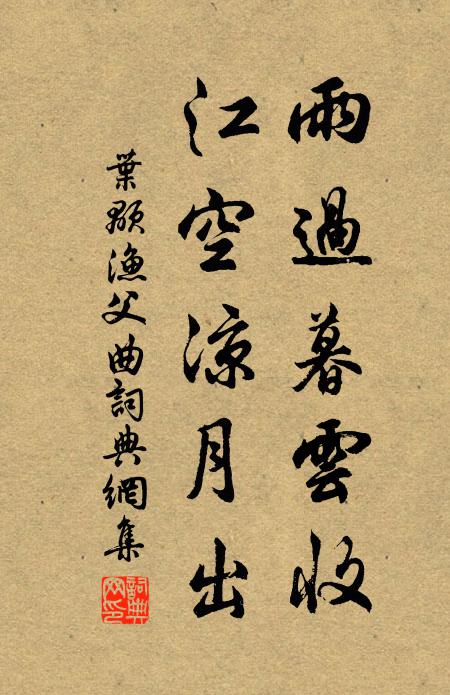 雨過暮雲收
江空涼月出
葉顒漁父曲詞典網集
詞典網印